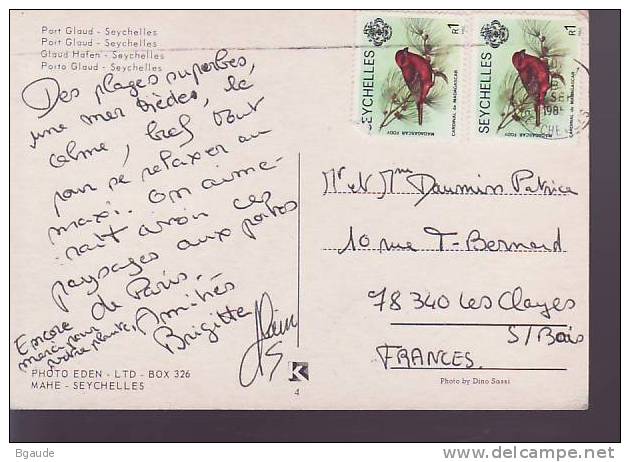 Port Glaud - Seychelles
Port Glaud - Seychelles
Glaud Hafen - Seychelles
Porto Glaud - Seychelles
Des plages superbes,
une mer tièdes, le
calme, bref tout
pour se relaxer au
maxi. On aime-
rait avoir ces
paysages aux portes
de Paris.
Amitiés
Brigitte Alain
Encore
merci pour
votre plante,
PHOTO EDEN - LTD - BOX 326
MAHE - SEYCHELLES
4
K
SEYCHELLES
R1
MADAGASCAR FODY
CARDINAL de MADAGASCAR
SEYCHELLES
R1
MADAGASCAR FODY
CARDINAL de MADAGASCAR
Mr et Mme Daumin Patrice
10 rue T-Bernard
78340 Les Clayes
S/Bois
FRANCES.
Photo by Dino Sassi
Bgaude
www.delcampe.net